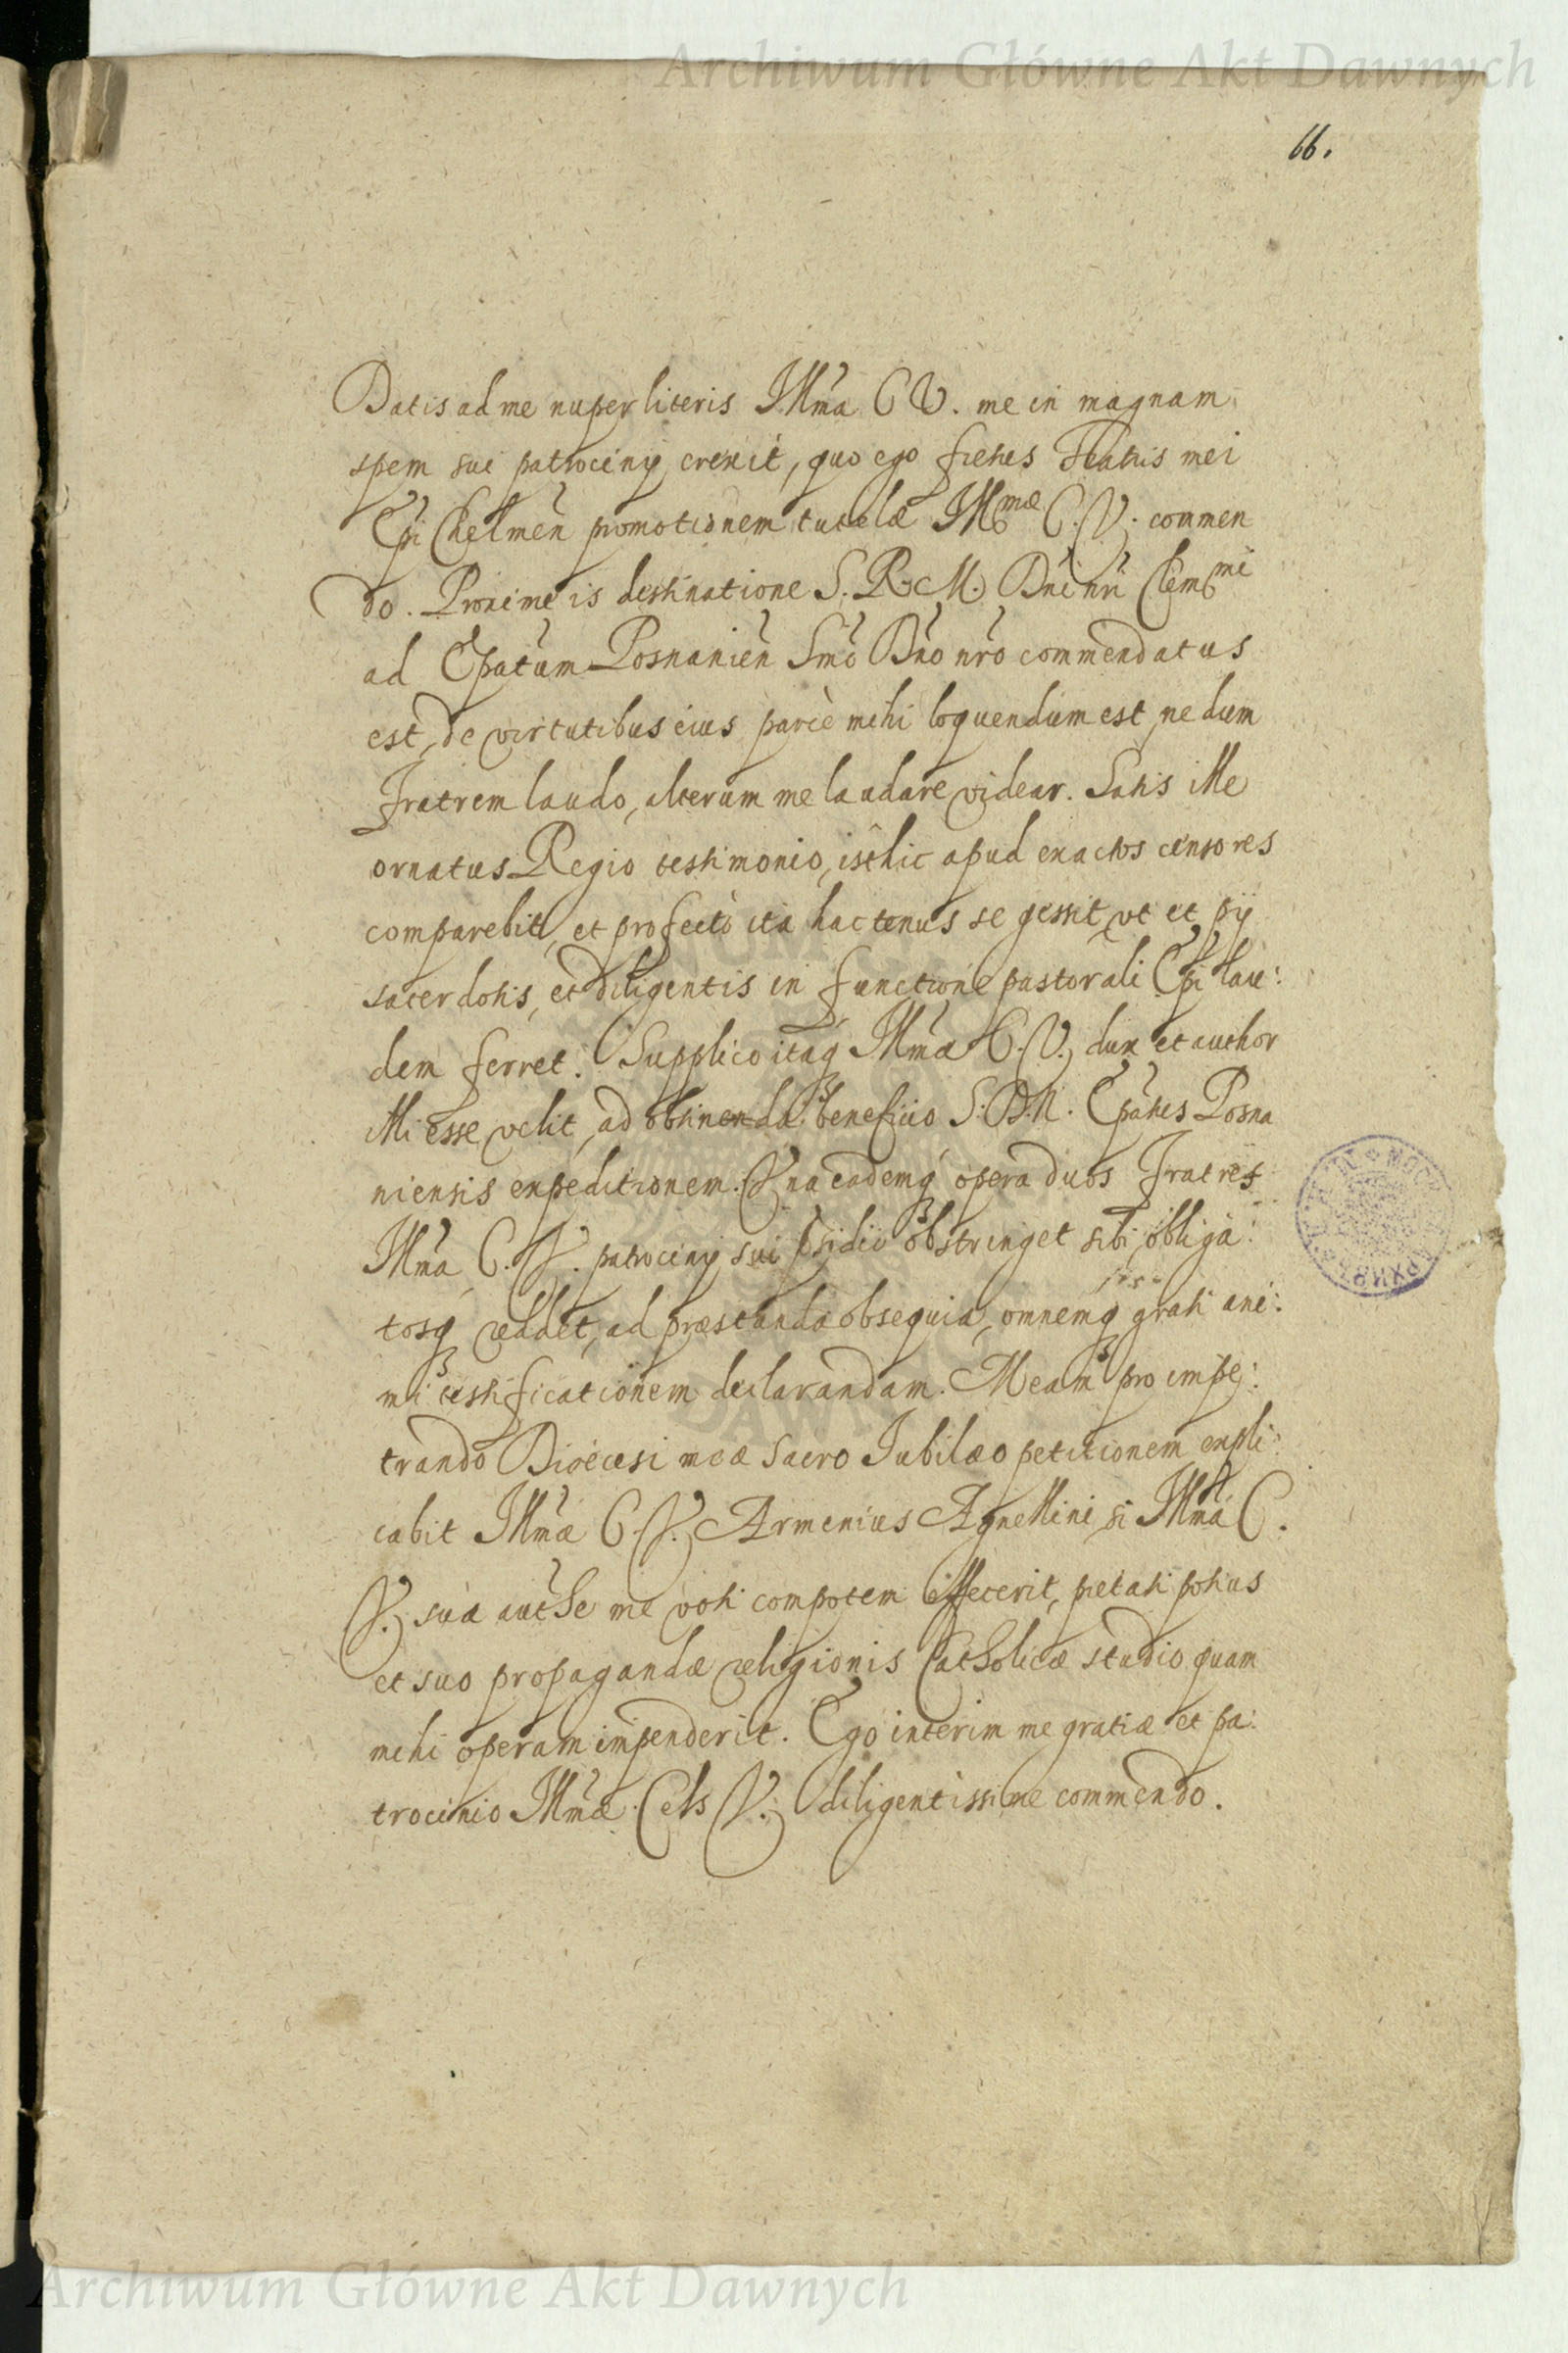 Archiwum Główne Akt Dawnych
66.
Datis ad me nuper literis Illma C V. me in magnam
spem sui patrocinij erexit, quo ego fretus Fratris mei
Epi Chelmen promotionem tutelæ Illmæ C. V. commen
do. Proxime is destinatione S. R. M. Dni nri Clemmi
ad Epatum Posnanien Smo Dno nro commendatus
est, de virtutibus eius parcè mihi loquendum est, ne dum
Fratrem laudo, alterum me laudare videar. Satis ille
ornatus Regio testimonio, isthic apud exactos censores
comparebit, et profectò ita hactenus se gessit, vt et pij
sacerdotis, et diligentis in functione pastorali Epi lau:
dem ferret. Supplico itaq Illmæ C. V. dux et author
illi esse velit, ad obtinendā beneficio S. D. N. Epatus Posna
niensis expeditionem. Vna eademq opera duos Fratres
Illma C. V. patrocinij sui obstringet sibi, obliga:
tosq reddet, ad præstanda obsequia, omnemq grati ani:
mi testificationem declarandam. Meam pro impe:
trando Diœcesi meæ Sacro Iubilæo petitionem expli:
cabit Illmæ C. V. Armenius Agnellini, si Illma C.
V. sua authe me voti compotem effecerit, pietati potius
et suo propagandæ religionis Catholicæ studio quam
mihi operam impenderit. Ego interim me gratiæ et pa:
trocinio Illmæ Cels V. diligentissime commendo.
Archiwum Główne Akt Dawnych